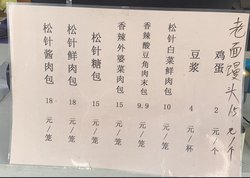 松针酱肉包 18 元/笼
松针鲜肉包 18 元/笼
松针糖包 15 元/笼
香辣外婆菜肉包 15 元/笼
香辣酸豆角肉末包 9.9 元/笼
松针白菜鲜肉包 10 元/笼
豆浆 4 元/杯
鸡蛋 2 元/个
老面馒头 1.5元/个